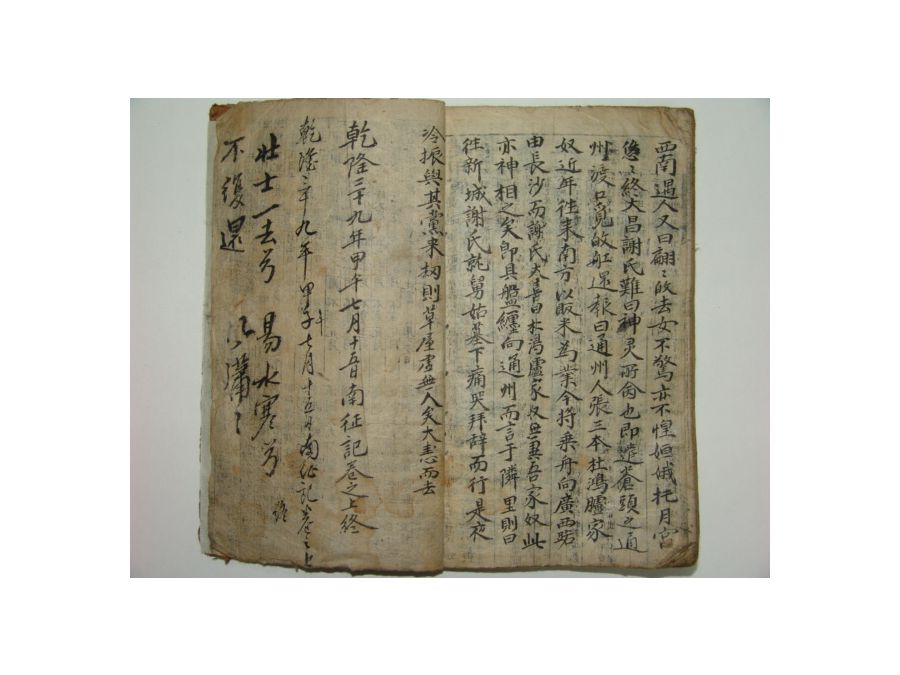 西南遇人又曰翩〻的去女不驚亦不惶姮娥托月宮
終大昌謝氏難曰神灵所僉也即遣蒼頭之通
州渡口覓的舡還報曰通州人張三本杜鴻臚家
奴近年徃来南方以販米為業今将乗舟向廣西路
由長沙而謝氏大喜曰杜鴻臚家奴無異吾家奴此
亦神相之矣即具盤纏向通州而言于隣里則曰
徃新城謝氏就舅姑墓下痛哭拜辞而行是夜
冷振與其黨来刼則草屋虗無人矣大恚而去
乾隆三十九年甲午七月十五日南征記卷之上終
乾隆三十九年甲子午七月十五日南征記卷之上
終
壮士一去兮 易水寒兮
不復還 蕭〻